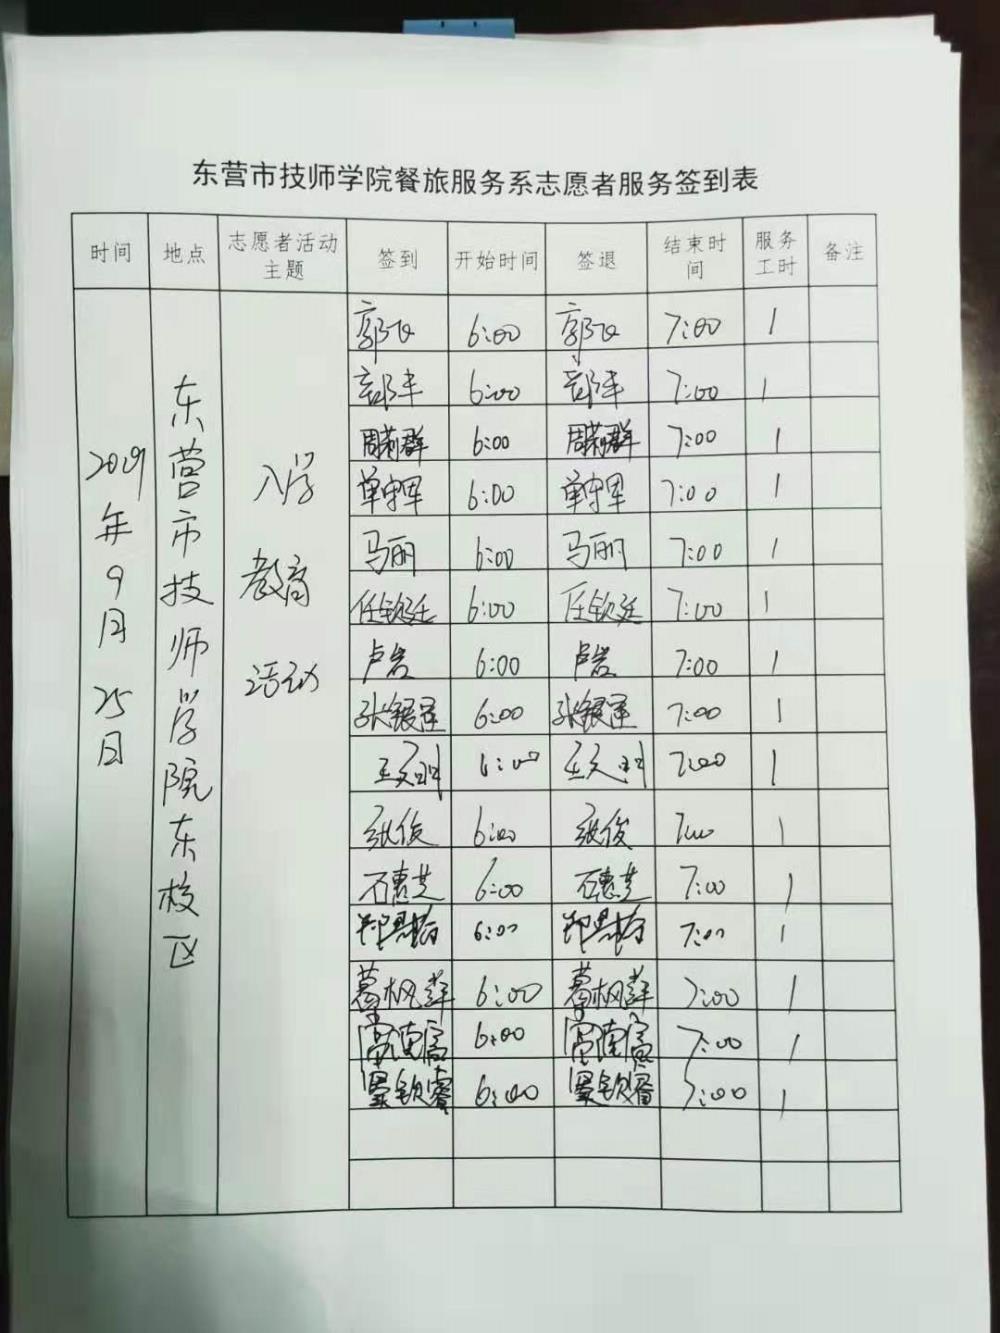 东营市技师学院餐旅服务系志愿者服务签到表
时间 地点 志愿者活动主题 签到 开始时间 签退 结束时间 服务工时 备注
2019年9月25日
东营市技师学院东校区
入学教育活动
郭飞 6:00 郭飞 7:00 1
6:00 7:00 1
周莉群 6:00 周莉群 7:00 1
单守军 6:00 单守军 7:00 1
马丽 6:00 马丽 7:00 1
任钦廷 6:00 任钦廷 7:00 1
卢岩 6:00 卢岩 7:00 1
张银星 6:00 张银星 7:00 1
6:00 7:00 1
张俊 6:00 张俊 7:00 1
石惠芝 6:00 石惠芝 7:00 1
6:00 7:00 1
葛枫群 6:00 葛枫群 7:00 1
6:00 7:00 1
6:00 7:00 1